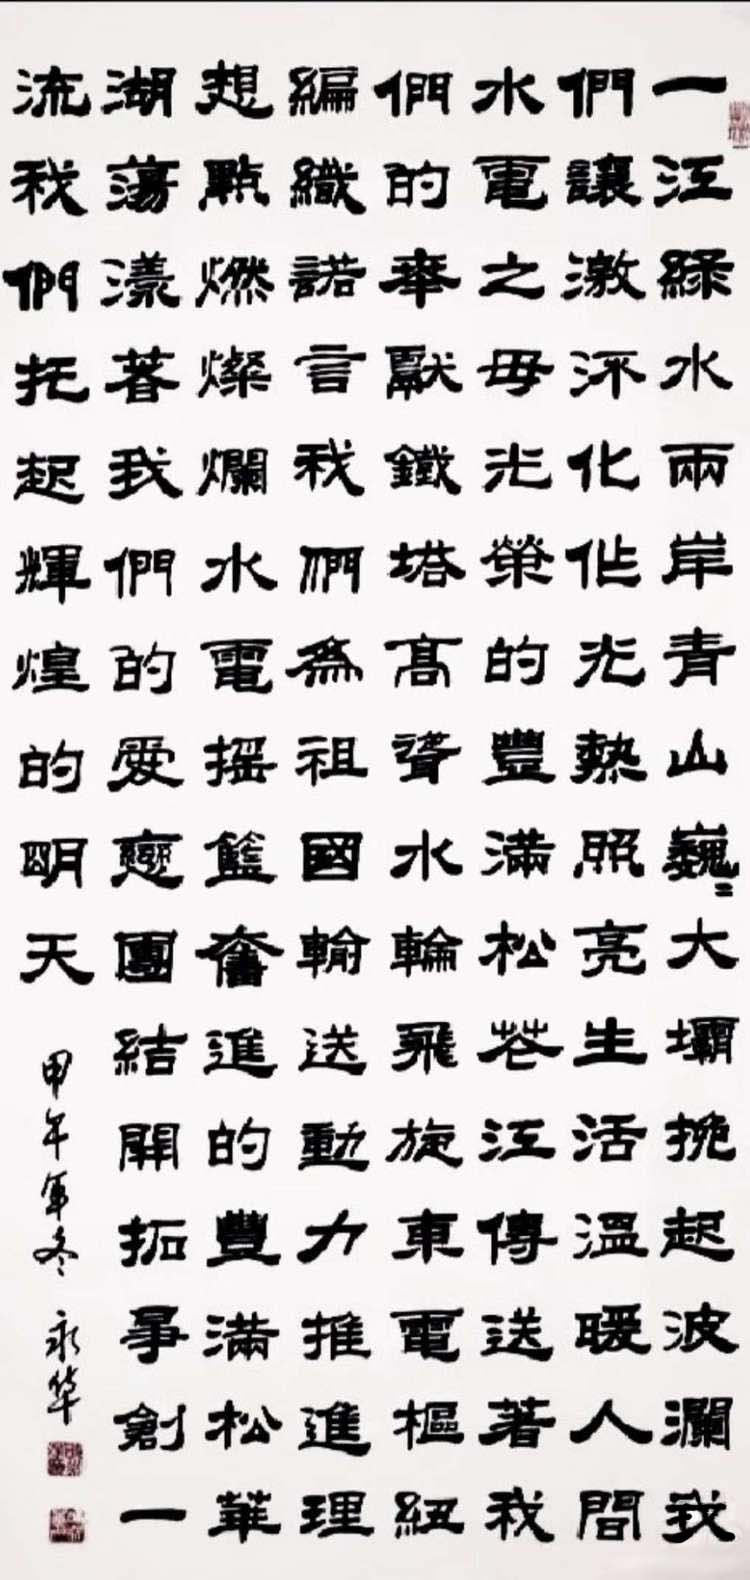 一江綠水兩岸青山巍〻大壩挽起波瀾我
們讓激流化作光熱照亮生活溫暖人間
水電之母光榮的豐滿松花江傳送著我
們的奉獻鐵塔高聳水輪飛旋東電樞紐
編織諾言我們為祖國輸送動力推進理
想點燃燦爛水電搖籃奮進的豐滿松華
湖蕩漾著我們的愛戀團結開拓爭創一
流我們托起輝煌的明天
甲午年冬 永华